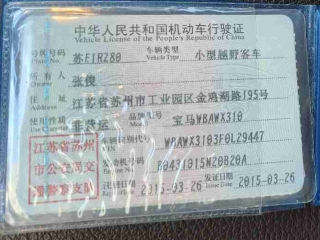 中华人民共和国机动车行驶证
Vehicle License of the People's Republic of China
号牌号码 苏F1RZ80 车辆类型 小型越野客车
Plate No. Vehicle Type
所有人 张俊
Owner
住址 江苏省苏州市工业园区金鸡湖路195号
Address
非营运 品牌型号 宝马WBAWX310
Model
江苏省苏州
市公安局交
通警察支队
车辆识别代号 WBAWX3103F0L29447
VIN
发动机号码 B0431015N20B20A
Engine No.
注册日期 2015-03-26 发证日期 2015-03-26